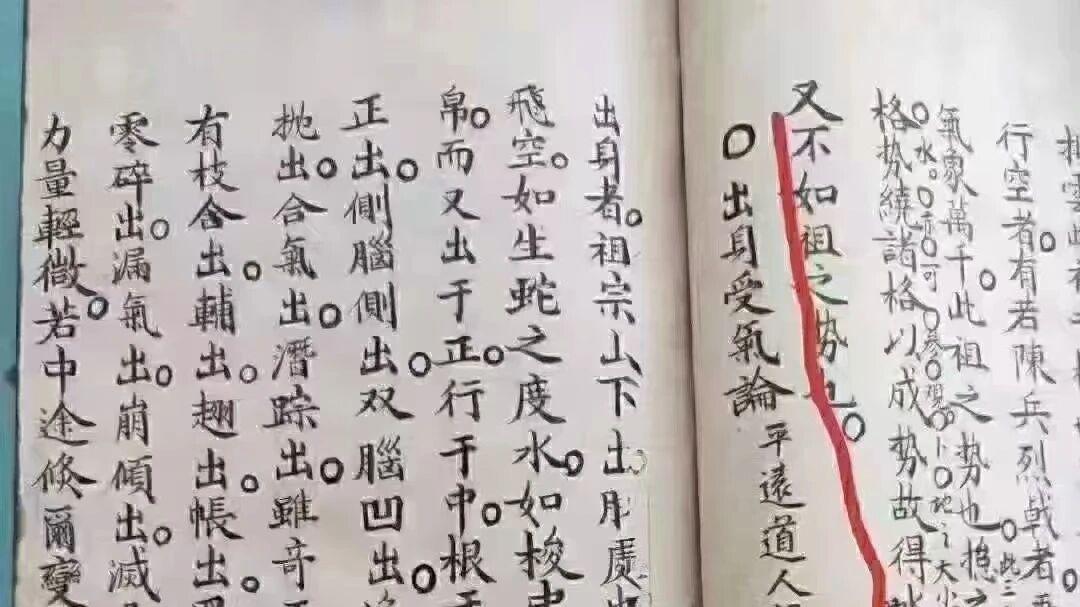 雲
行空者。有若陳兵烈戟者
氣象萬千。此祖之势也。
格势繞諸格以成势故得
又不如祖之势也。
〇出身受氣論 平遠道人
出身者。祖宗山下出
飛空。如生蛇之度水。如梭
帛。而又出于正。行于中。根于
正出。側腦側出。双腦凹出。
抛出。合氣出。潛踪出。雖竒
有枝含出。輔出。翅出。帳出。
零碎出。漏氣出。崩傾出。滅
力量輕微。若中途倐爾變